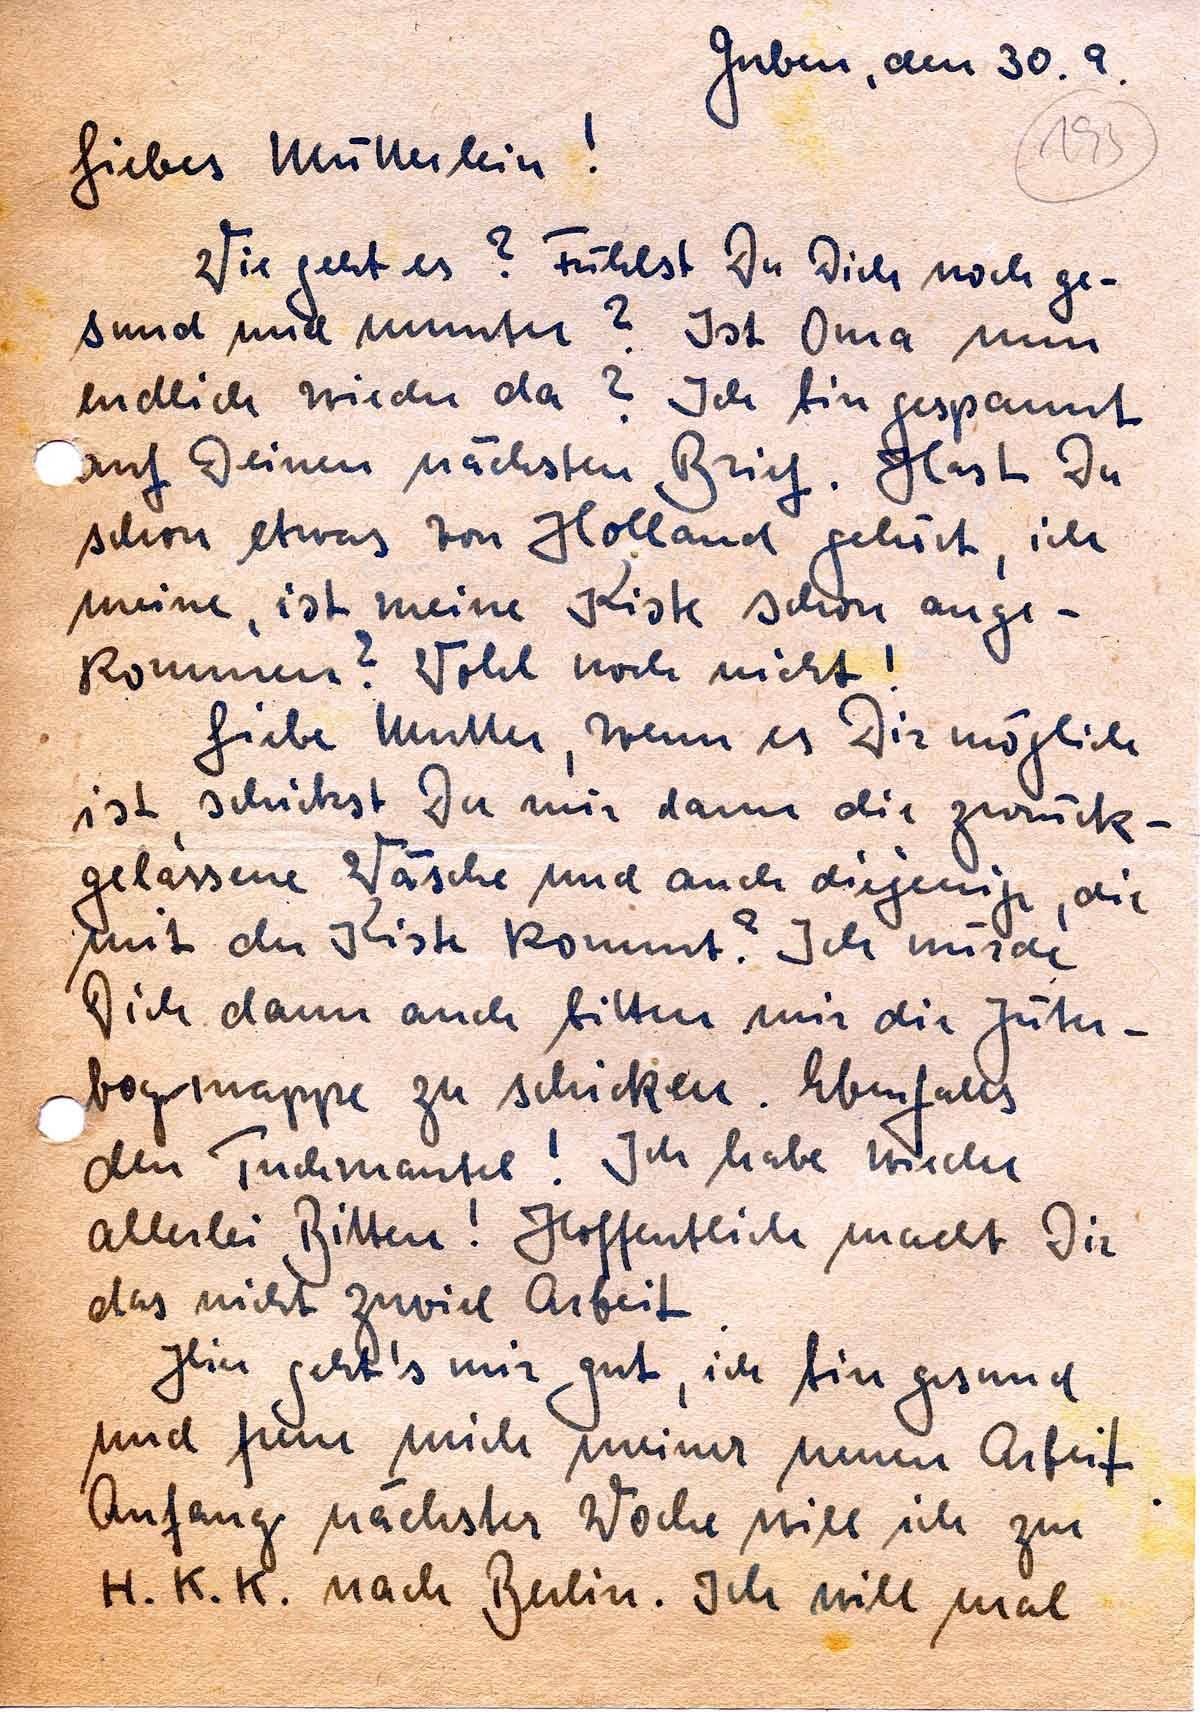 Guben, den 30. 9.
193
Liebes Mütterlein!
Wie geht es? Fühlst Du Dich noch ge-
sund und munter? Ist Oma nun
endlich wieder da? Ich bin gespannt
auf Deinen nächsten Brief. Hast Du
schon etwas von Holland gehört, ich
meine, ist meine Kiste schon ange-
kommen? Wohl noch nicht!
Liebe Mutter, wenn es Dir möglich
ist, schickst Du mir dann die zurück-
gelassene Wäsche und auch diejenige, die
mit der Kiste kommt? Ich würde
Dich dann auch bitten mir die Jüter-
bogmappe zu schicken. Ebenfalls
den Tuchmantel! Ich habe wieder
allerlei Bitten! Hoffentlich macht Dir
das nicht zuviel Arbeit.
Hier geht's mir gut, ich bin gesund
und freue mich meiner neuen Arbeit.
Anfang nächster Woche will ich zur
H.K.K. nach Berlin. Ich will mal